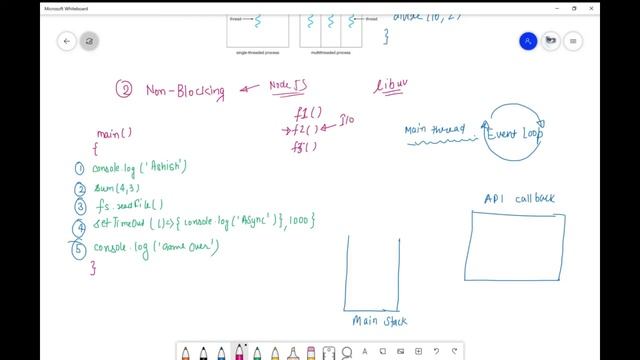 Microsoft Whiteboard
thread
thread
divide (10, 2)
}
single-threaded process
multithreaded process
② Non-Blocking ← Node JS
libuv
f1()
→ f2() ← I/o
f3()
main()
{
① console.log ('Ashish')
② sum(4,3)
③ fs.readFile()
④ setTimeOut (()=>{ console.log('Async')}, 1000}
⑤ console.log ('Game Over')
}
Main thread
Event Loop
API callback
Main Stack